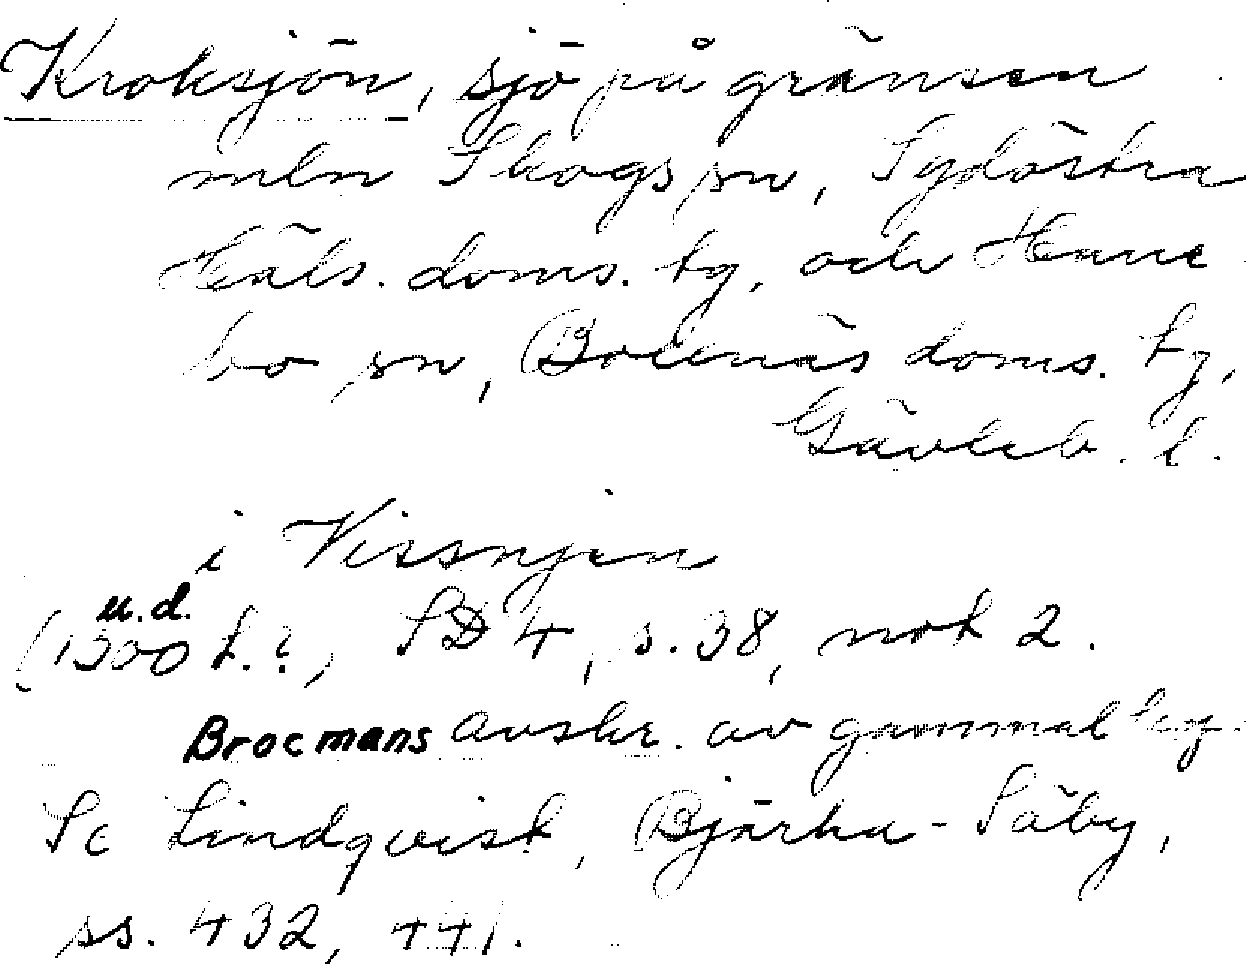 Kroksjön, sjö på gränsen
mln Skogs sn, Sydöstra
Häls. doms. tg, och Hane
bo sn, Bollnäs doms. tg,
Gävleb. l.
i Vissnjen
u.d.
(1300 t.?, SD 4, s. 38, not 2.
Brocmans avskr. av gammal
Se Lindqvist, Bjärka-Säby,
ss. 432, 441.